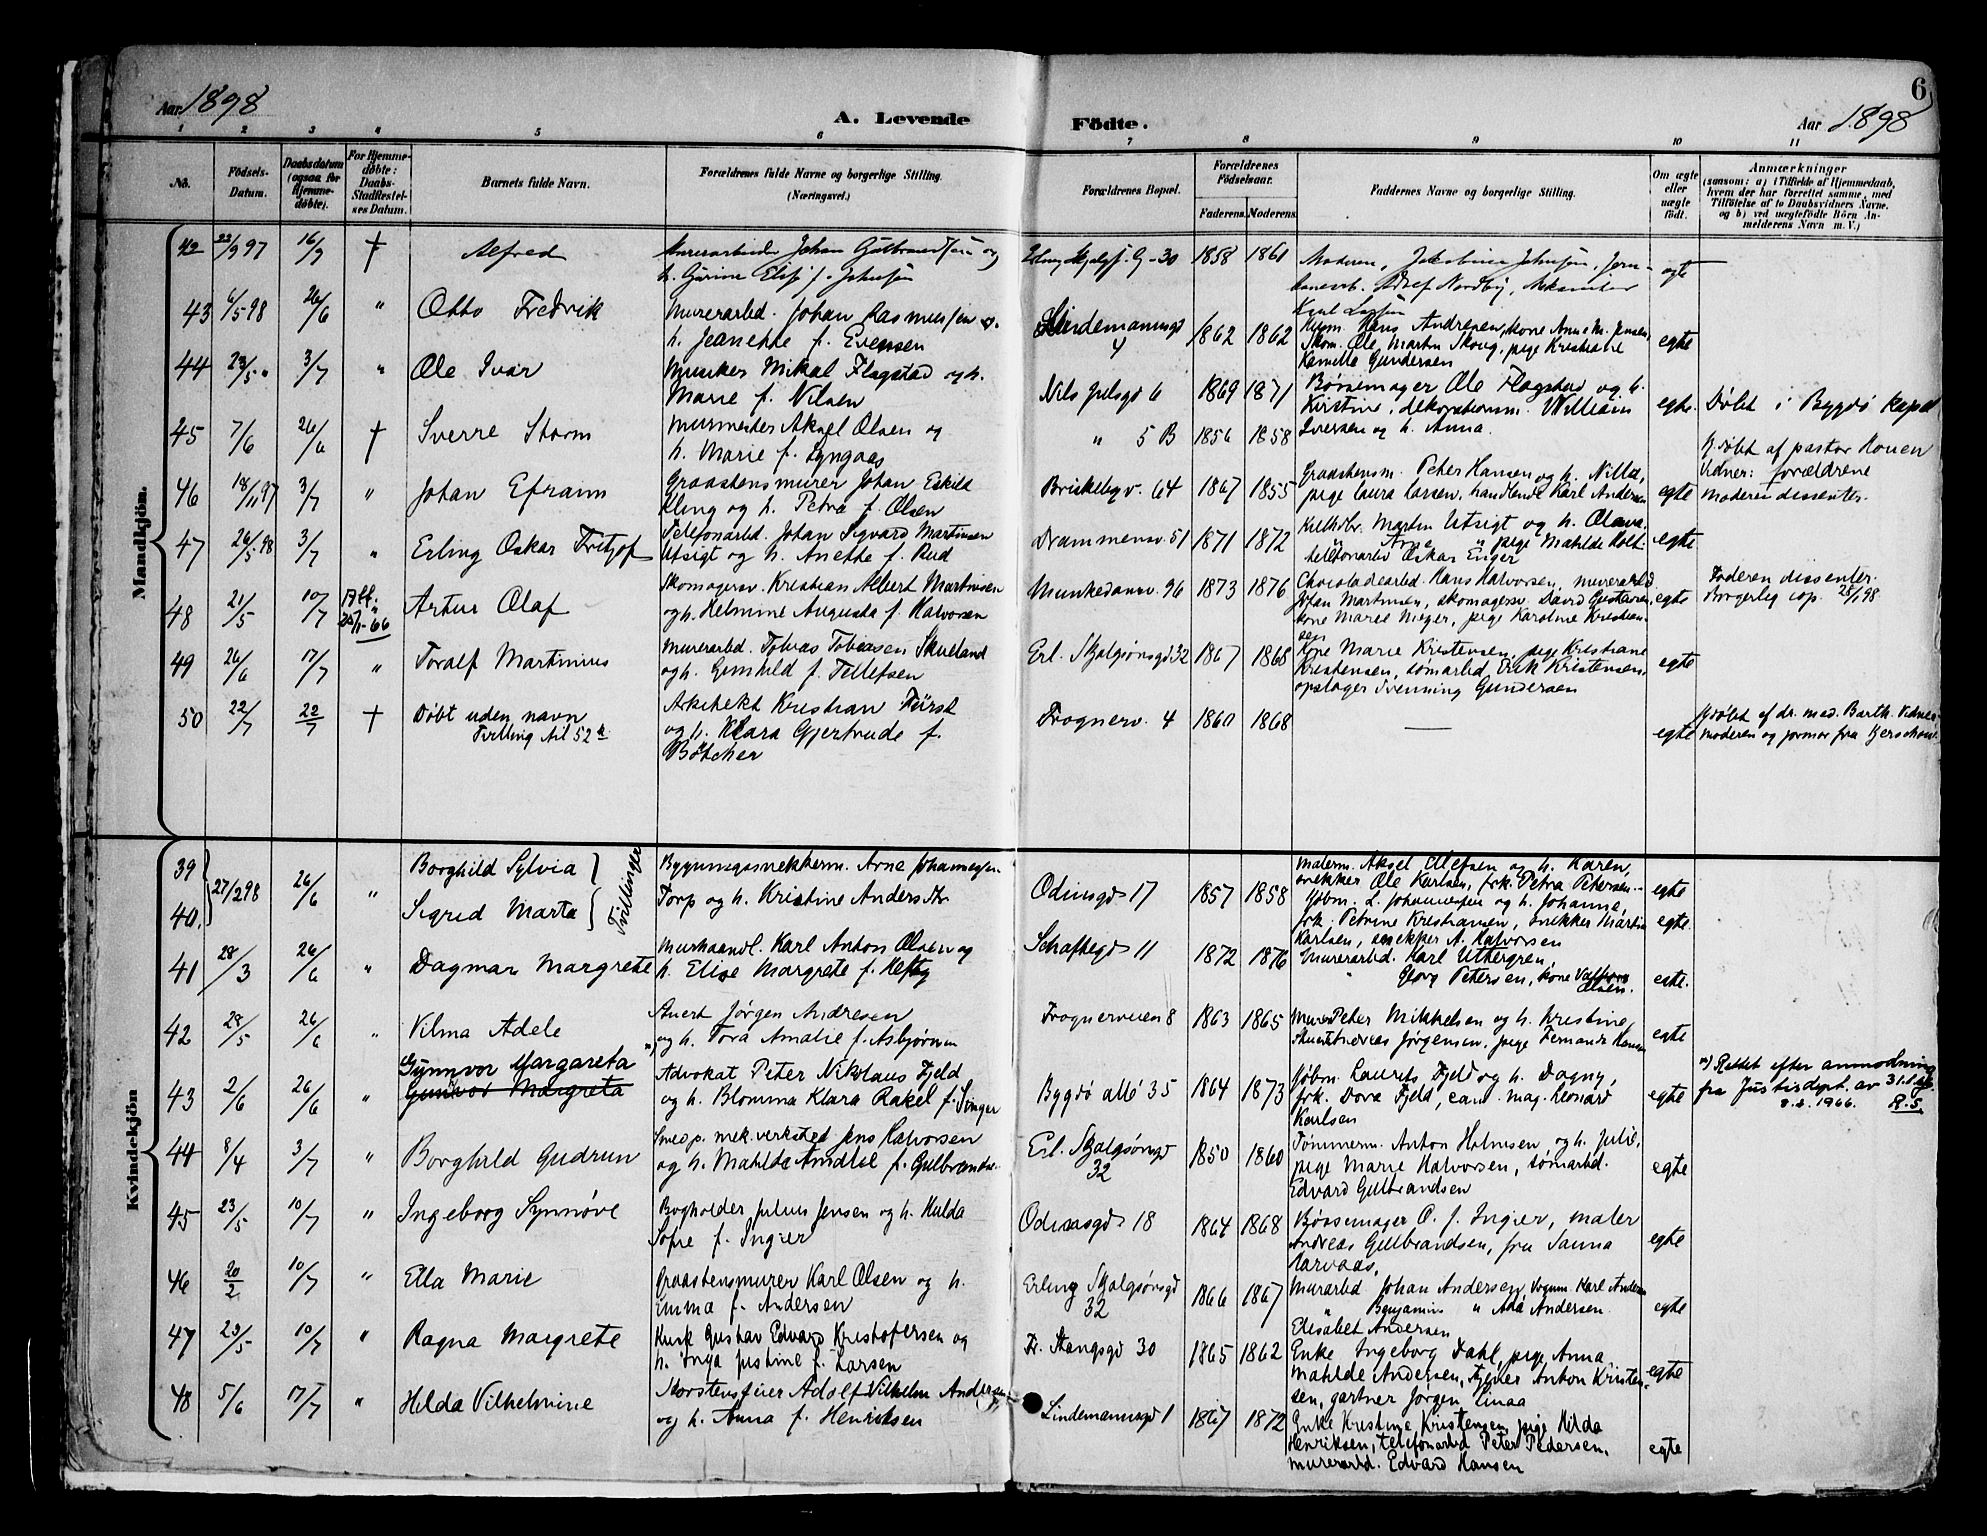 Aar 1898
A. Levende
Födte.
Aar 1898
6
1 2 3 4 5 6 7 8 9 10 11
No.
Födsels-Datum.
Daabsdatum (ogsaa for Hjemme-döbte).
For Hjemme-döbte: Daabs-Stadfæstel-ses Datum.
Barnets fulde Navn.
Forældrenes fulde Navne og borgerlige Stilling. (Næringsvei.)
Forældrenes Bopæl.
Forældrenes Födselsaar.
Faderens. Moderens.
Faddernes Navne og borgerlige Stilling.
Om ægte eller uægte födt.
Anmærkninger
(saasom: a) i Tilfælde af Hjemmedaab,
hvem der har forrettet samme, med
Tilföielse af to Daabsvidners Navne,
og b) ved uægtefödte Börn An-
melderens Navn m. V.)
Mandkjön.
42 22/9 97 16/9 † Alfred
Murerarbeider Johan Gulbrandsen og
30 1858 1861
egte
43 6/5 98 26/6 " Otto Fredrik
Murerarbd. Johan Rasmussen o.
h. Jeanette f. Evensen
Lindemannsgd 4 1862 1862
Hans Andresen, kone Anne M. Jensen,
Skom. Ole Martin Skoug, pige Kristiane
Kamilla Gundersen
egte
44 23/5 " 3/7 " Ole Ivar
Musiker Mikal Flagstad og h.
Marie f. Nilsen
Nils Juelsgd 6 1869 1871
Børsemager Ole Flagstad og h.
Kristine, dekorationsm. William
Iversen og h. Anna.
egte. Døbt i Bygdø kapel
45 7/6 26/6 † Sverre Storm
Murmester Aksel Olsen og
h. Marie f. Lyngaas
" 5 B 1856 1858
Hjdøbt af pastor Houen
Vidner: forældrene
46 18/11 97 3/7 " Johan Efraim
Graastensmurer Johan Eskild
Kling og h. Petra f. Olsen
Briskebyv. 64 1867 1855
Graastensm. Peter Hansen og h. Nilla,
pige Laura Larsen, handlende Karl Andersen
egte moderen dissenter.
47 26/5 98 3/7 " Erling Oskar Fritjof
Telefonarbd. Johan Sigvard Martinsen
Utsigt og h. Anette f. Rud
Drammensv. 51 1871 1872
Kulhdlr. Martin Utsigt og h. Olava,
" Arne " pige Matilde Holt
telefonarbd Oskar Enger
egte
48 21/5 10/7 Artur Olaf
Skomagersv. Kristian Albert Martinsen
og h. Helmine Augusta f. Halvorsen
Munkedamsv. 96 1873 1876
Chocoladearbd. Hans Halvorsen, murerarbd
Johan Martinsen, skomagersv. David Gustavsen,
kone Marie Meyer, pige Karoline Kristian-
sen
egte Faderen dissenter.
Borgerlig cop. 28/1 98
49 26/6 17/7 " Toralf Martinius
Murerarbd. Tobias Tobiassen Skuland
og h. Gunhild f. Tellefsen
Erl. Skjalgsønsgd 32 1867 1868
Kone Marie Kristensen, pige Kristiane
Kristensen, tømarbd. Erik Kristensen,
opslager Svenning Gundersen
egte
50 22/7 22/7 † Døbt uden navn
Tvilling til 52
Arkitekt Kristian Fürst
og h. Klara Gjertrude f.
Bötcher
Frognerv. 4 1860 1868
—
egte Hjdøbt af dr. med. Barth. Vidner:
moderen og jormor fra Gerschow
Kvindekjön
39 Borghild Sylvia
27/2 98 26/6 " Tvillinger
40. Sigrid Marta
Bygningssnekkerm. Arne Johannessen
Torp og h. Kristine Andersdtr
Odinsgd 17 1857 1858
Malerm. Aksel Olefsen og h. Karen,
snekker Ole Karlsen, frk. Petra Petersen. -
Gjøbm. L. Johannessen og h. Johanna,
frk. Petrine Kristiansen, snekker Martin
Karlsen, snekker A. Halvorsen
egte
egte.
41 28/3 26/6 " Dagmar Margrete
Murhaandl. Karl Anton Olsen og
h. Elise Margrete f. Hefty
Schaftegd 11 1872 1876
Murerarbd. Karl Uthergren,
" Georg Petersen, kone Valborg
Olsen.
egte.
42 28/5 26/6 " Vilma Adele
Stuert Jørgen Andresen
og h. Tora Amalie f. Asbjørnsen
Frognerveien 8 1863 1865
Murer Peter Mikkelsen og h. Kristine,
Stuert Andreas Jørgensen, pige Fernanda Hansen
egte
Gynnvor Margareta
43 2/6 26/6 " Gunvor Margreta
Advokat Peter Nikolaus Fjeld
og h. Blomma Klara Rakel f. Singer
Bygdø allé 35 1864 1873
Gjøbm. Laurits Fjeld og h. Dagny,
frk. Dora Fjeld, cand. mag. Leonard
Karlsen
egte
Rettet efter anmodning
fra Justisdept. av 31.1.66
8.2.1966. R.S.
44 8/4 3/7 " Borghild Gudrun
Smed p. mek. verksted Jens Halvorsen
og h. Mathilde Amalie f. Gulbrandsen
Erl. Skjalgsønsgd 32 1850 1860
Tømmerm. Anton Holmsen og h. Julie,
pige Marie Halvorsen, tømarbd.
Edvard Gulbrandsen
egte
45 23/5 10/7 " Ingeborg Synnøve
Bogholder Julius Jensen og h. Hulda
Sofie f. Ingier
Odinsgd 18 1864 1868
Børsemager O. J. Ingier, maler
Andreas Gulbrandsen, fru Sanna
Aarvaas,
egte
46 20/2 10/7 " Ella Marie
Graastensmurer Karl Olsen og h.
Emma f. Andersen
Erling Skjalgsønsgd 32 1866 1867
Murarbd Johan Andersen, vognm. Karl Andersen
" Benjamin " Ada Andersen.
Elisabet Andersen
egte
47 23/5 10/7 " Ragna Margrete
Kusk Gustav Edvard Kristofersen og
h. Inga Justine f. Larsen
Fr. Stangsgd 30 1865 1862
Enke Ingeborg Dahl, pige Anna
Mathilde Andersen, tjener Anton Kristen-
sen, gartner Jørgen Linaa
egte
48 5/6 17/7 " Hilda Vilhelmine
Skorstensfeier Adolf Vilhelm Andersen
og h. Anna f. Henriksen
Lindemannsgd 1 1867 1872
Enke Kristine Kristensen, pige Hilda
Henriksen, telefonarbd Peter Pedersen,
murerarbd. Edvard Hansen
egte